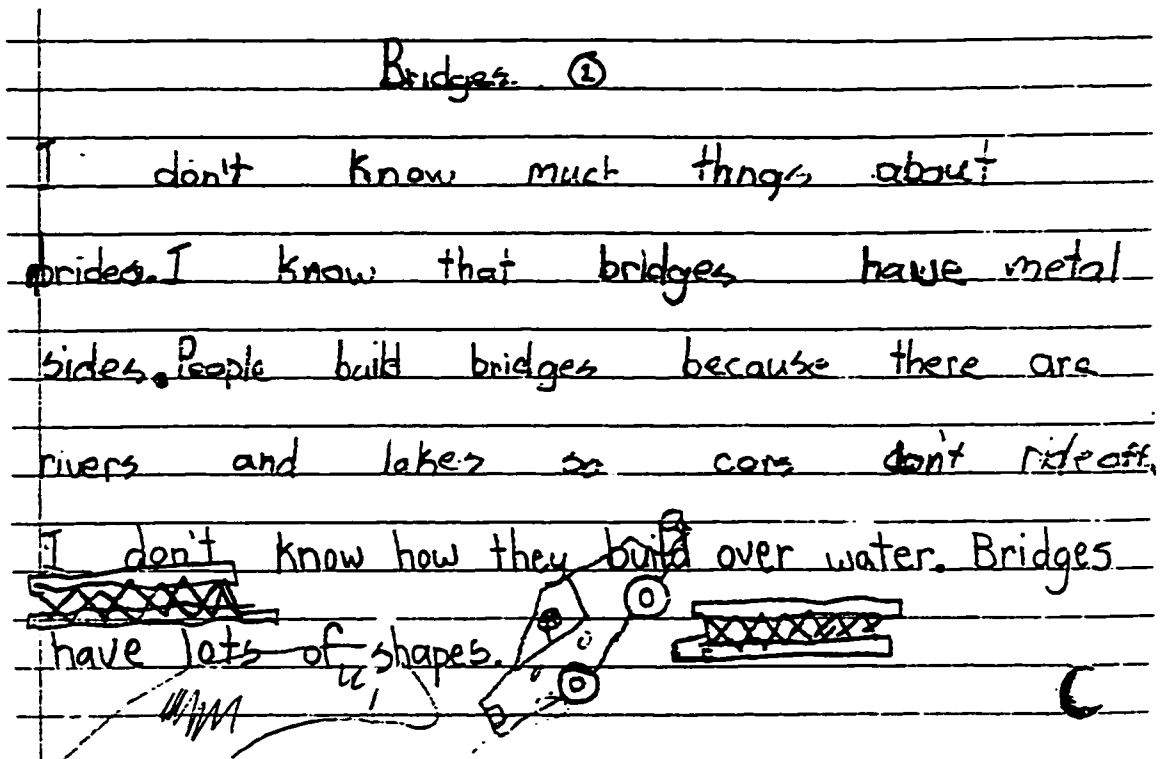 Bridges. ①
I don't know much thngs about
brides. I know that bridges have metal
sides. People build bridges because there are
rivers and lakes so cars don't ride off.
I don't know how they build over water. Bridges
have lots of shapes.